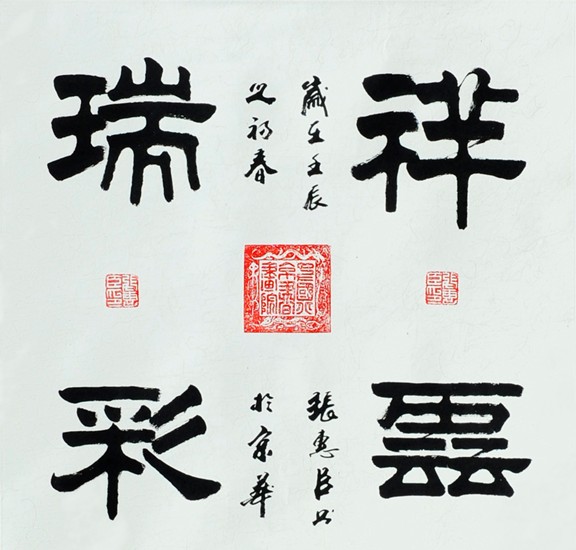 祥雲
歲在壬辰
之初春
張惠臣书
於京華
瑞彩